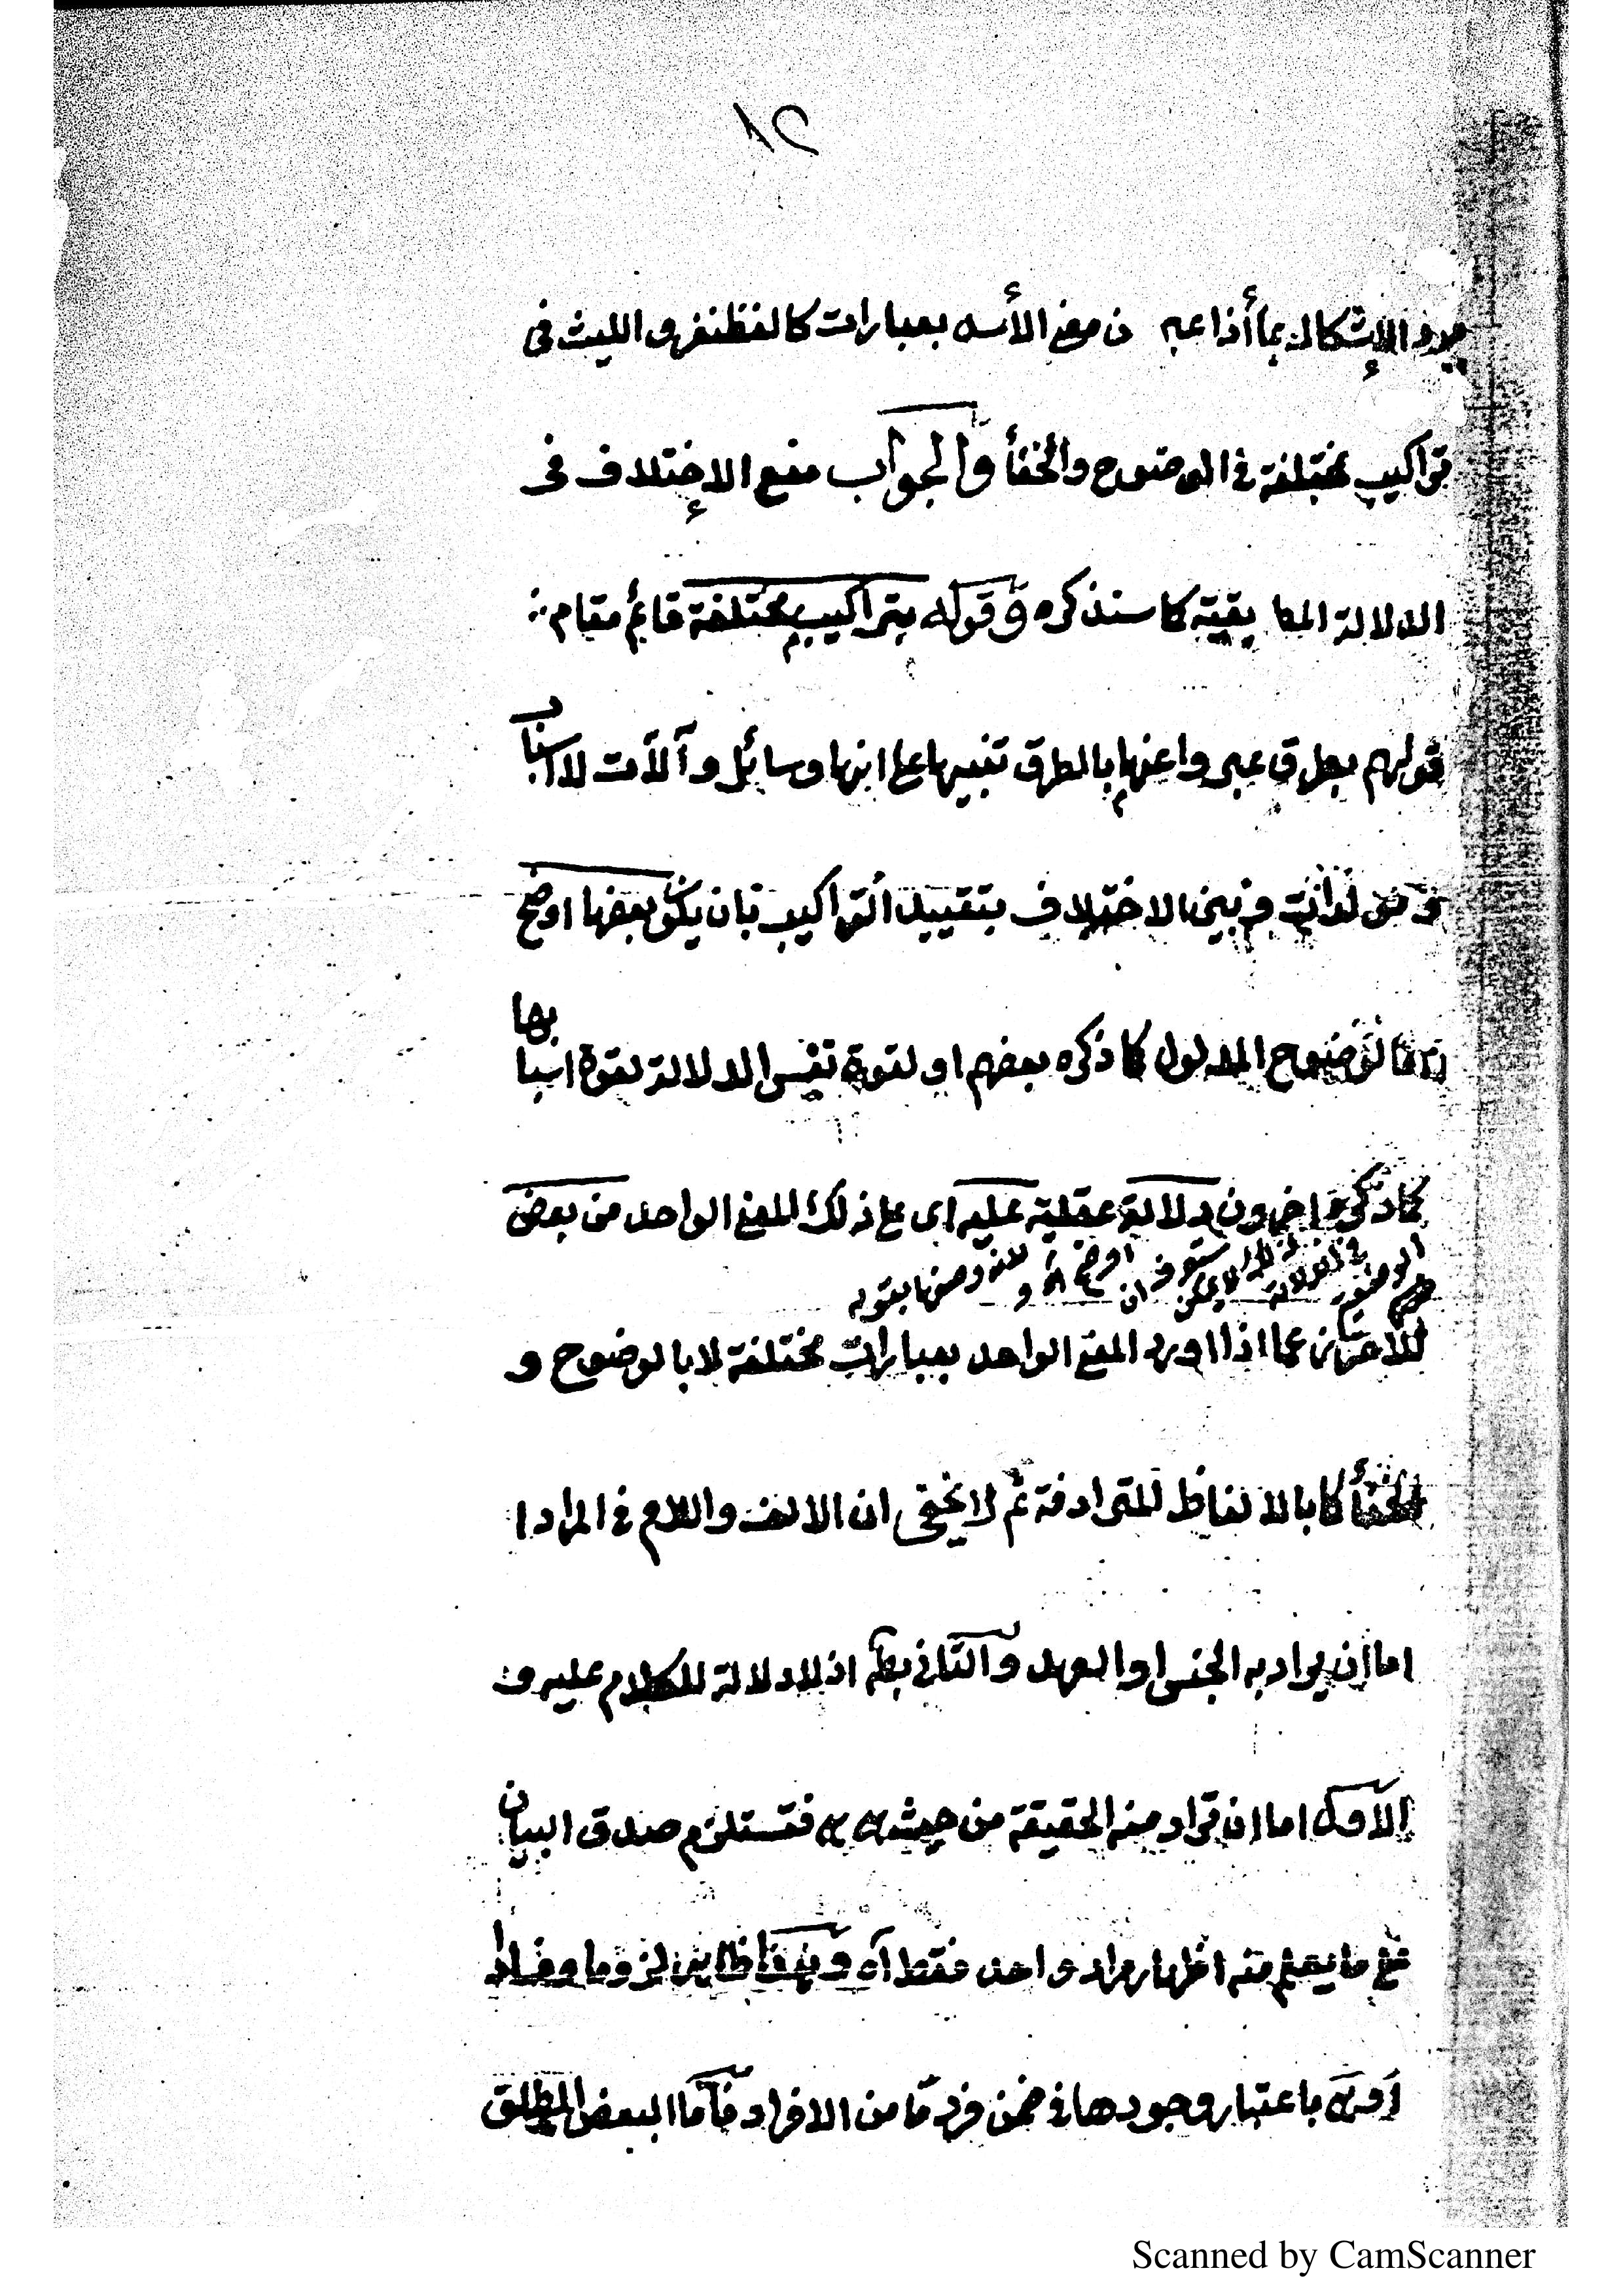 ١٥
الإشكال بما أذا عبر عن معنى الأسد بعبارات كالغظنفر و الليث فى
تراكيب مختلفة فى الوضوح والخفأ والجواب منع الإختلاف فى
الدلالة المطابقية كما سنذكره وقوله بتراكيب مختلفة قائم مقام
قولهم بطرق عبروا عنها بالطرق تنبيها على انها وسائل وآلات لا اسباب
الاختلاف بتقييد التراكيب بان يكون بعضها اوضح
لوضوح المدلول كما ذكره بعضهم او لقوة نفس الدلالة لقوة اسبابها
كما ذكره اخرون دلالة عقلية عليه اى على ذلك المعنى الواحد من بعض
للاحتراز عما اذا اورد المعنى الواحد بعبارات مختلفة لا بالوضوح و
الخفأ كما بالالفاظ المترادفة ثم لا يخفى ان الالف واللام فى المراد ا
اما ان يراد به الجنس او العهد والثانى بط اذ لا دلالة للكلام عليه و
الأول اما ان تراد منه الحقيقة من حيث هى هى فتستلزم صدق البيان
على ما يعلم منه اظهار مراد واحد فقط آه
باعتبار وجودها فى ضمن فرد مّا من الافراد فأمّا البعض المطلق
Scanned by CamScanner